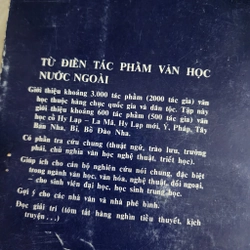 TỪ ĐIỂN TÁC PHẨM VĂN HỌC
NƯỚC NGOÀI
Giới thiệu khoảng 3.000 tác phẩm (2000 tác gia) văn
học thuộc hàng chục quốc gia và dân tộc. Tập này
giới thiệu khoảng 600 tác phẩm (500 tác gia) văn
học cổ Hy Lạp – La Mã, Hy Lạp mới, Ý, Pháp, Tây
Ban Nha, Bỉ, Bồ Đào Nha.
Có phần tra cứu chung (thuật ngữ, trào lưu, trường
phái, chủ nghĩa văn học nghệ thuật, triết học).
Giúp ích cho cán bộ nghiên cứu nói chung, đặc biệt
trong ngành văn học, văn hóa, nghệ thuật, đối ngoại,
– cho sinh viên đại học, học sinh trung học.
Gợi ý cho các nhà văn và nhà phê bình.
Đọc giải trí (tóm tắt hàng nghìn tiểu thuyết, kịch
truyện ...)